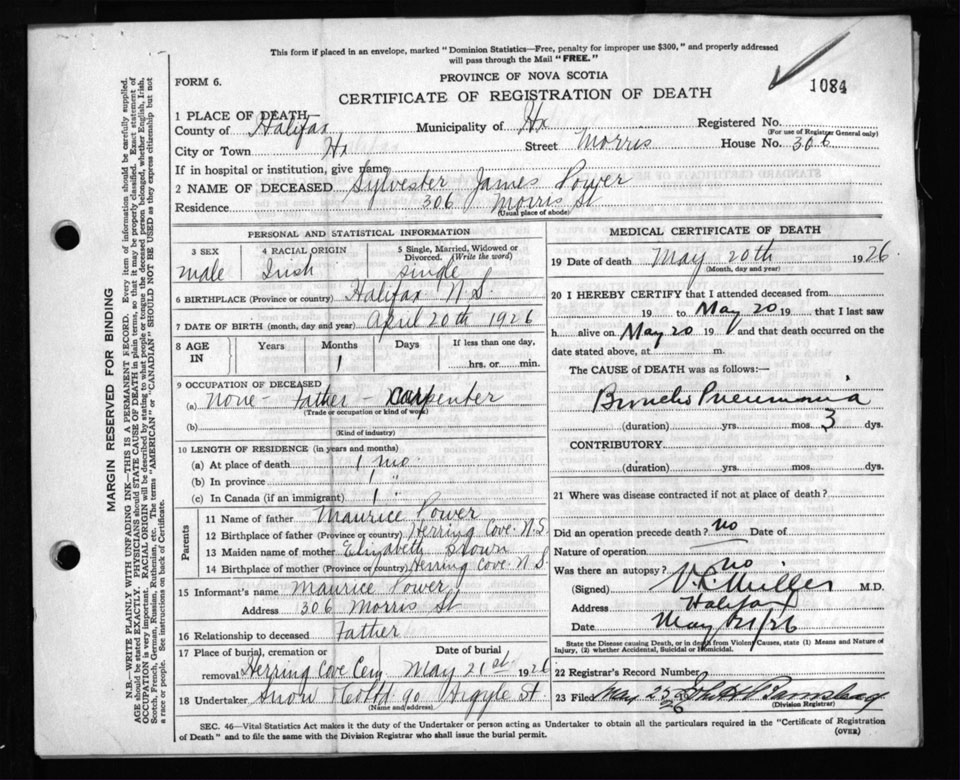 This form if placed in an envelope, marked "Dominion Statistics—Free, penalty for improper use $300," and properly addressed
will pass through the Mail "FREE."
FORM 6.
PROVINCE OF NOVA SCOTIA
1084
CERTIFICATE OF REGISTRATION OF DEATH
1 PLACE OF DEATH
County of Halifax Municipality of Hx Registered No.
(For use of Registrar General only)
City or Town Hx Street Morris House No. 306
If in hospital or institution, give name
2 NAME OF DECEASED Sylvester James Power
Residence 306 Morris St
(Usual place of abode)
PERSONAL AND STATISTICAL INFORMATION
3 SEX male
4 RACIAL ORIGIN Irish
5 Single, Married, Widowed or
Divorced. (Write the word)
single
6 BIRTHPLACE (Province or country) Halifax N.S.
7 DATE OF BIRTH (month, day and year) April 20th 1926
8 AGE IN Years Months 1 Days If less than one day,
hrs. or min.
9 OCCUPATION OF DECEASED
(a) none - Father - Carpenter
(Trade or occupation or kind of work)
(b)
(Kind of industry)
10 LENGTH OF RESIDENCE (in years and months)
(a) At place of death 1 mo.
(b) In province 1 "
(c) In Canada (if an immigrant) 1 "
Parents
11 Name of father Maurice Power
12 Birthplace of father (Province or country) Herring Cove. N.S.
13 Maiden name of mother Elizabeth
14 Birthplace of mother (Province or country) Herring Cove. N.S.
15 Informant's name Maurice Power
Address 306 Morris St
16 Relationship to deceased Father
17 Place of burial, cremation or Date of burial
removal Herring Cove Cem May 21st 1926
18 Undertaker Snow & Co Ltd 90 Argyle St
(Name and address)
MEDICAL CERTIFICATE OF DEATH
19 Date of death May 20th 1926
(Month, day and year)
20 I HEREBY CERTIFY that I attended deceased from
19 to May 20 19 that I last saw
h alive on May 20 19 and that death occurred on the
date stated above, at m.
The CAUSE of DEATH was as follows:
Broncho Pneumonia
(duration) yrs. mos. 3 dys.
CONTRIBUTORY
(duration) yrs. mos. dys.
21 Where was disease contracted if not at place of death?
Did an operation precede death? no Date of
Nature of operation
Was there an autopsy? no
(Signed) Miller M.D.
Address Halifax
Date May 21/26
State the Disease causing Death, or in deaths from Violent Causes, state (1) Means and Nature of
Injury, (2) whether Accidental, Suicidal or Homicidal.
22 Registrar's Record Number
23 Filed May 25 26
(Division Registrar)
SEC. 46—Vital Statistics Act makes it the duty of the Undertaker or person acting as Undertaker to obtain all the particulars required in the "Certificate of Registration
of Death" and to file the same with the Division Registrar who shall issue the burial permit. (OVER)
MARGIN RESERVED FOR BINDING
N.B.—WRITE PLAINLY WITH UNFADING INK—THIS IS A PERMANENT RECORD. Every item of information should be carefully supplied.
AGE should be stated EXACTLY. PHYSICIANS should STATE CAUSE OF DEATH in plain terms, so that it may be properly classified. Exact statement of
OCCUPATION is very important. RACIAL ORIGIN will be described by stating to what people or tongue the deceased person belonged, whether English, Irish,
Scotch, French, German, Russian, Ruthenian, etc. The terms "AMERICAN" or "CANADIAN" SHOULD NOT BE USED as they express citizenship but not
a race or people. See instructions on back of Certificate.